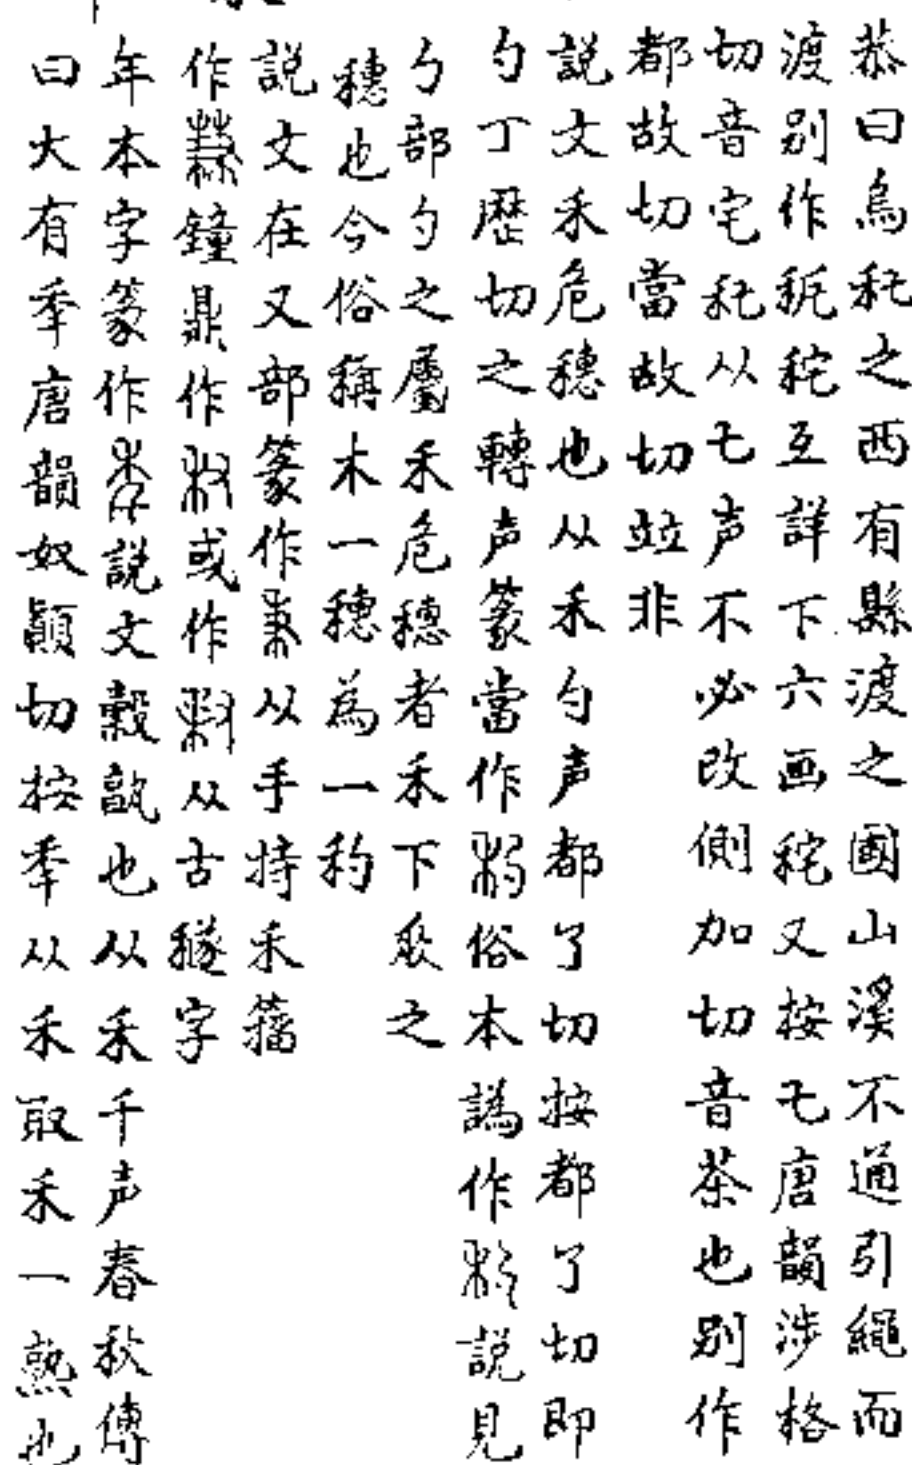 恭曰烏秅之西有縣渡之國山溪不通引繩而
渡别作秅秺互詳下六画秺又按乇唐韻涉格
切音宅秅从乇声不必改側加切音茶也别作
都故切當故切竝非
説文禾危穗也从禾勺声都了切按都了切即
勺丁歷切之轉声篆當作俗本譌作説見
勺部勺之屬禾危穗者禾下垂之
穗也今俗稱木一穗為一䄪
説文在又部篆作从手持禾籀
作鐘鼎作或作从古穟字
年本字篆作説文穀孰也从禾千声春秋傳
曰大有秊唐韻奴顚切按秊从禾取禾一熟也